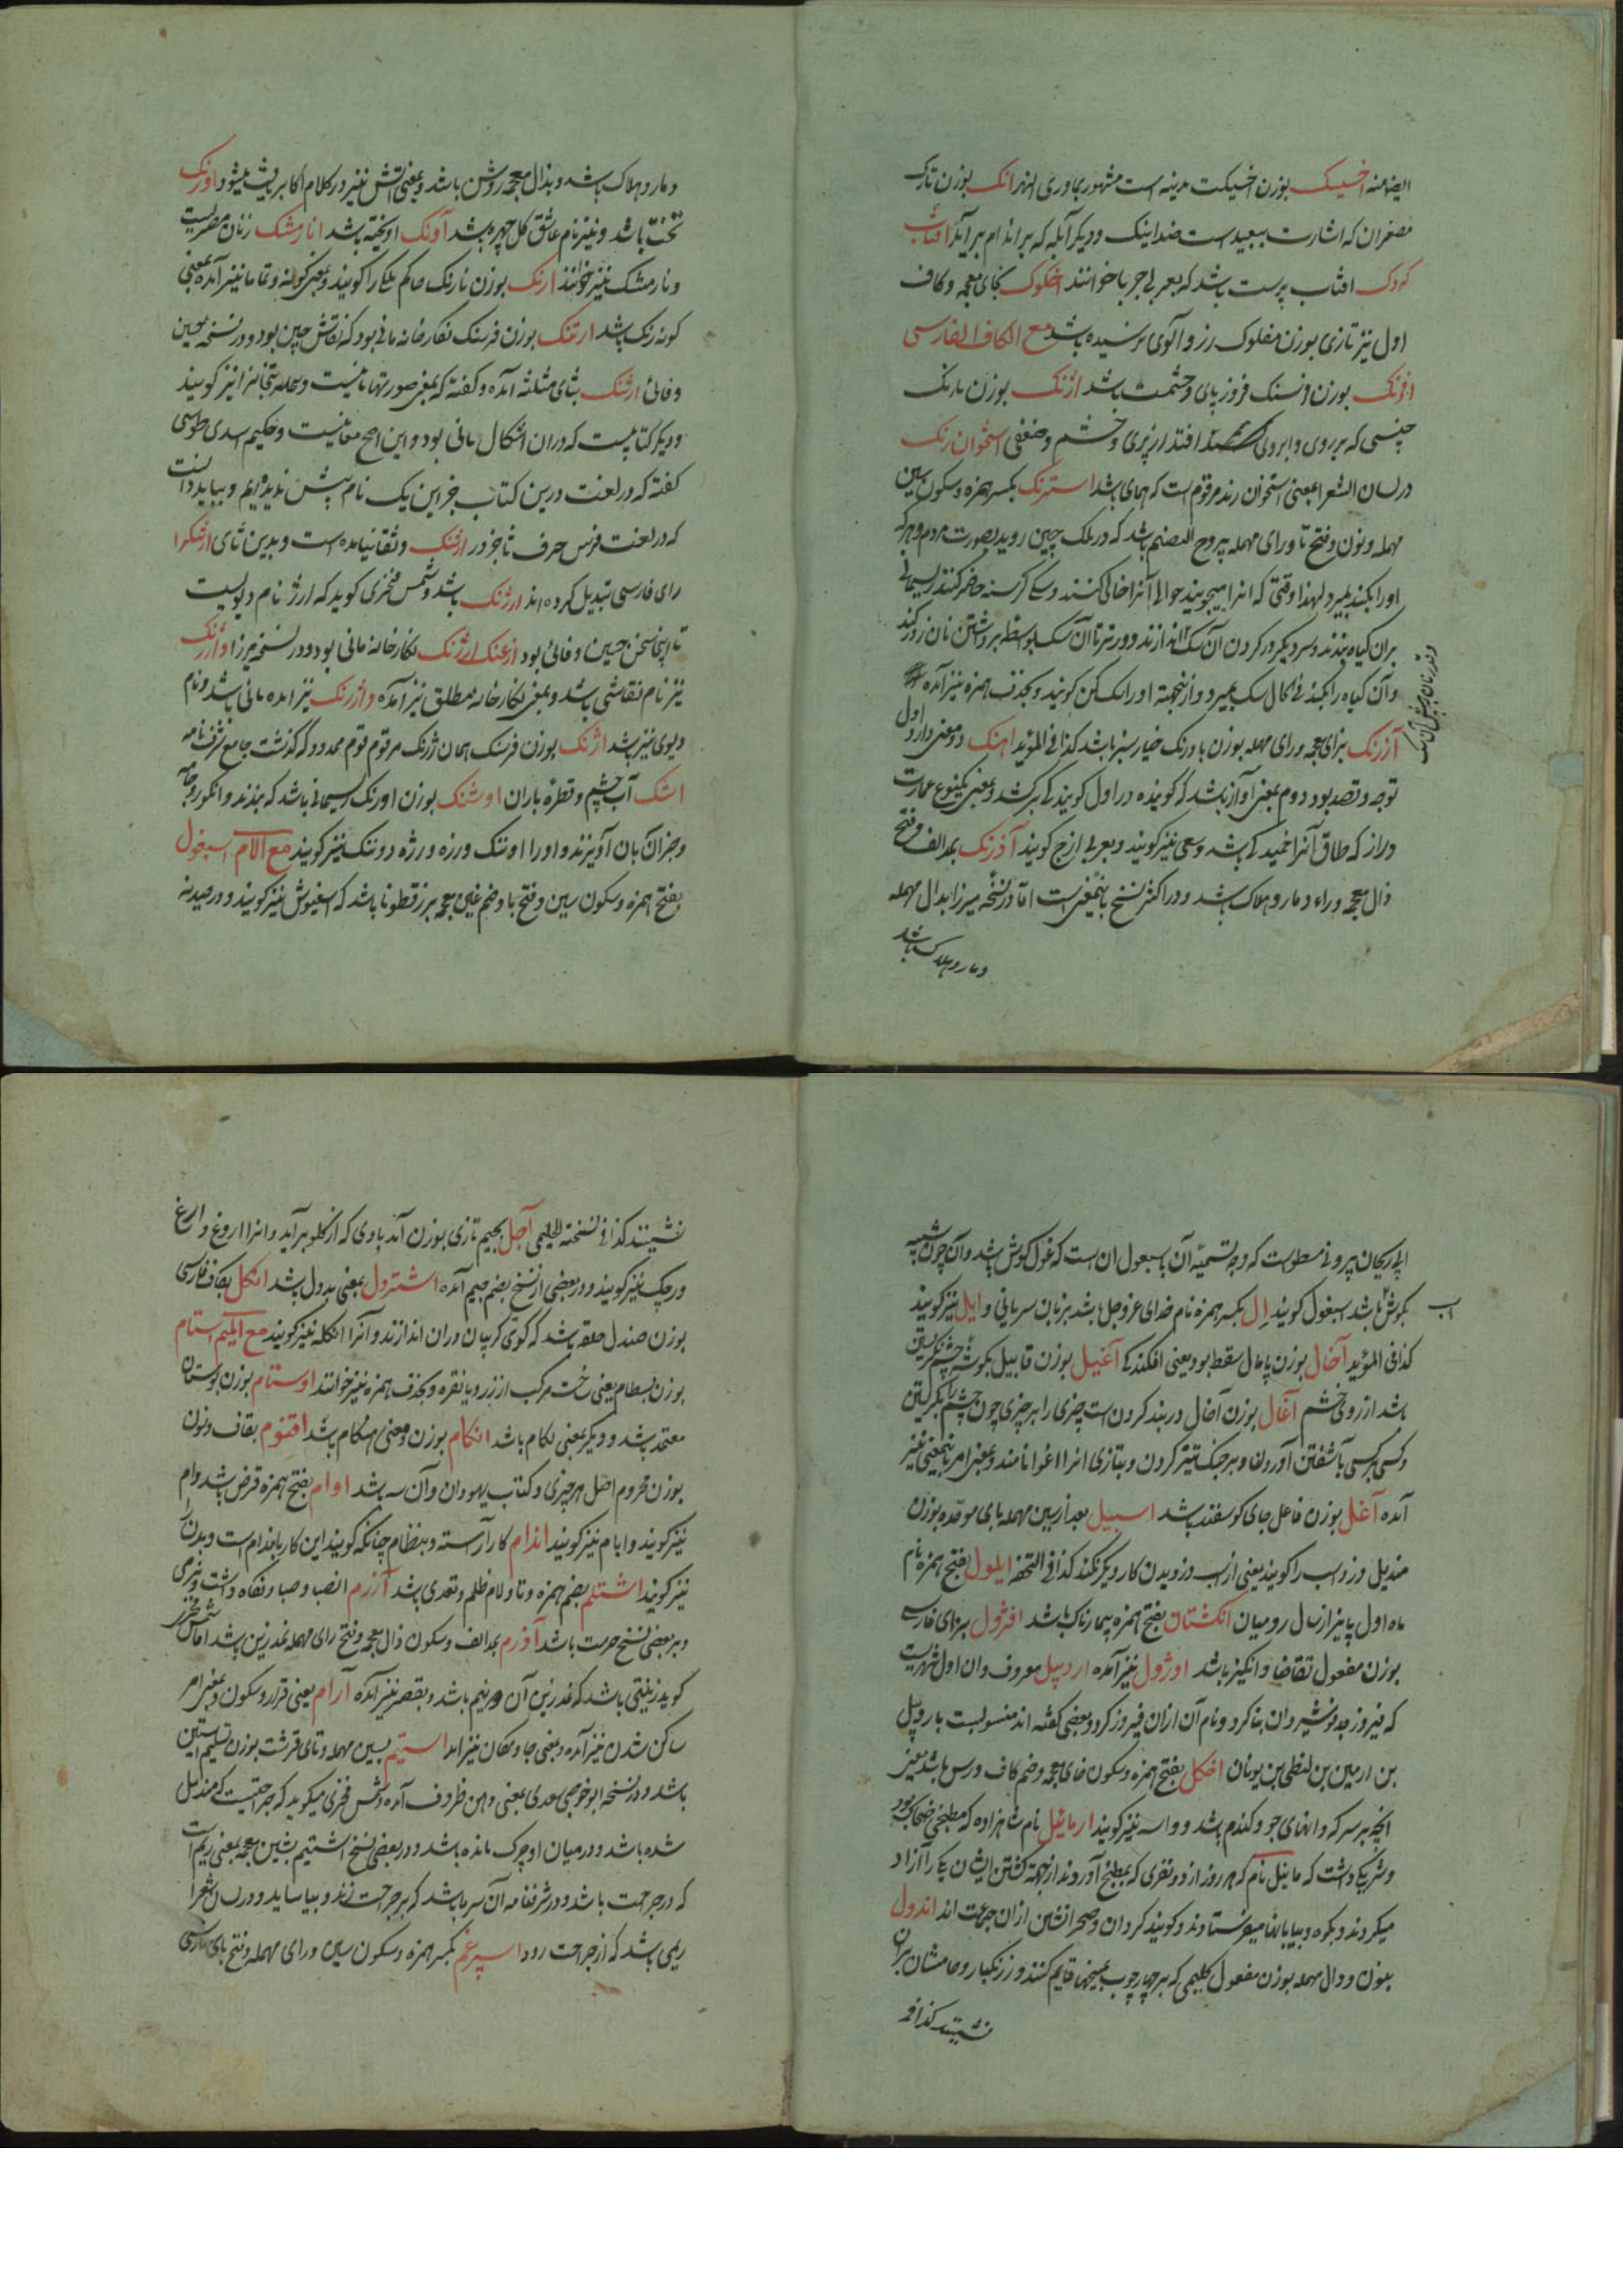 ایضا منه اخسیک بوزن اخسیکت مدینه است مشهور بماوری النهر انک بوزن تارک
مصغران که اشارت ببعید است ضد اینک و دیکر آبله که بر اندام برآید افتاب
کردک افتاب پرست باشد که بعربی حربا خوانند اخکوک بخای معجمه و کاف
اول نیز تازی بوزن مفلوک زردالوی نرسیده باشد مع الکاف الفارسی
افرنک بوزن و سنک فروزیبای و حشمت باشد اژنک بوزن نارنک
چینی که بر روی و ابروی افتد از پیری و خشم و ضعفی استخوان رنک
در لسان الشعرا بمعنی استخوان رند مرقوم است که همای باشد استرنک بکسر همزه و سکون سین
مهمله و نون و فتح تا و رای مهمله یبروح الصنم باشد که در ملک چین روید بصورت مردم و هر که
اورا بکند بمیرد لهذا وقتی که انرا میجویند حوالی آنرا خالی کنند و سکی کرسنه حاضر کنند ریسمانی
بران کیاه بندند و سر دیکر در کردن آن سک اندازند و دورتر تا آن سک بواسطه برداشتن نان زور کند
و آن کیاه را بکند فی الحال سک بمیرد و ازینجهته اورا سک کن کویند و بحذف همزه نیز آمده
آزرنک بزای معجمه و رای مهمله بوزن بادرنک خیار سبز باشد کذا فی المؤید اهنک دو معنی دارد اول
توجه و قصد بود دوم بمعنی آواز باشد که کوینده در اول کویندکی برکشد و بمعنی یکنوع عمارت
دراز که طاق آنرا خمیدکی باشد و سعی نیز کویند و بعربی ازج کویند آذرنک بمد الف و فتح
ذال معجمه و راء دمار و هلاک باشد و در اکثر نسخ باینمعنی است اما در نسخه میرزا بدال مهمله
دمار و هلاک باشد
دمار و هلاک باشد و بذال معجمه روشن باشد و بمعنی آتش نیز در کلام اکابر یافت میشود اورنک
تخت باشد و نیز نام عاشق کل چهره باشد آونک اویخته باشد انارمشک رنان مصریست
و نارمشک نیز خوانند ارنک بوزن نارنک حاکم ملکی را کویند و بمعنی کوله و تمامانیز آمده بمعنی
کونه رنک باشد ارتنک بوزن فرسنک نکارخانه مانی بود که نقاش چین بود و در نسخه حسین
وفائی ارثنک بثای مثلثه آمده و کفته که بمعنی صورتهای مانیست و بعله بتخانه را نیز کویند
و دیکر کتابیست که دران اشکال مانی بود و این اصح معانیست و حکیم اسدی طوسی
کفته که در لغت درین کتاب جز این یک نام پیش ندیده ایم و بباید دانست
که در لغت فرس حرف ثا جز در ارثنک و ثقا نیامده است و بدین ثای ارثنک را
رای فارسی تبدیل کرده اند ارژنک باشد و شمس فخری کوید که ارژ نام دیویست
تا اینجا سخن حسین وفائی بود ارغنک ارژنک نکارخانه مانی بود و در نسخه میرزا و اژرنک
نیز نام نقاشی باشد و بمعنی نکارخانه مطلق نیز آمده و اژرنک نیز امده مانی باشد و نام
دیوی نیز باشد اژنک بوزن فرسنک همان ژرنک مرقوم قوم محدود که کذشت جامع شرفنامه
اشک آب چشم و قطره باران اوشنک بوزن اورنک ریسمانی باشد که بندند و انکور و جامه
و جز آن بان آویزند و اورا اوتنک و رزه و رژه و وننک نیز کویند مع اللام اسبغول
بفتح همزه و سکون سین و فتح با و ضم غین معجمه بزرقطونا باشد که اسفیوش نیز کویند و در صیدنه
ابی ریحان بیرونی مسطور است که وجه تسمیه آن باسبغول ان است که غول کوش باشد و آن چون شبیه
بکوش اسب باشد اسبغول کویند اِل بکسر همزه نام خدای عزوجل باشد بزبان سریانی و ایل نیز کویند
کذا فی المؤید آخال بوزن پامال سقط بود یعنی افکندنی آغیل بوزن قابیل بکوشه چشم نکریستن
باشد از روی خشم آغال بوزن آخال در بند کردن است چیزی را بر چیزی چون چشم را بکریستن
و کسی بر کسی باشفتن آوردن و بر جنک تیز کردن و بتازی انرا اغوا نامند و بمعنی امر باینمعنی نیز
آمده آغل بوزن فاعل جای کوسفند باشد اسبیل بعد از سین مهمله بای موحده بوزن
مندیل دزد اسب را کویند یعنی از اسب دزدیدن کار دیکر نکند کذا فی التحفه ایلول بفتح همزه نام
ماه اول پاییز از سال رومیان انکشتال بفتح همزه بیمارناک باشد افژول بزای فارسی
بوزن مفعول تقاضا و انکیز باشد اوژول نیز آمده اردبیل معروف و ان اول شهریست
که فیروز جد نوشیروان بنا کرد و نام آن ازان فیروز کرد و بعضی کفته اند منسوبست باردبیل
بن ارمین بن لنطی بن یونان اخکل بفتح همزه و سکون خای معجمه و ضم کاف ورس باشد یعنی
انچه بر سر که دانهای جو و کندم باشد و داسه نیز کویند ارمائیل نام شاهزاده که مطبخی ضحاک بود
و شریکی داشت که مائیل نام که هر روز از دو نفری که بمطبخ آوردند از جهته کشتن ایشان یکی را آزاد
میکردند و بکوه و بیابانها میفرستادند و کویند کردان و صحرانشین ازان جماعت اند اندول
بنون و دال مهمله بوزن مفعول کلیمی که بر چهار چوب بمیخها قایم کنند و زنکبار و حامشان بران
نشینند کذا فی
نشینند کذا فی نسخه الحلیمی آجل بجیم تازی بوزن آمد بادی که از کلو برآید و انرا اروغ و ارغ
و رجک نیز کویند و در بعضی از نسخ بضم جیم آمده اشتردل بمعنی بددل باشد انکل بکاف فارسی
بوزن صندل حلقه باشد که کوی کریبان دران اندازند و آنرا انکله نیز کویند مع المیم استام
بوزن بسطام یعنی رخت مرکب از زر و یا نقره و بحذف همزه نیز خوانند اوستام بوزن بوستان
معتمد باشد و دیکر بمعنی لکام باشد انکام بوزن و معنی هنکام باشد اقنوم بقاف و نون
بوزن محروم اصل هر چیزی و کتاب یهودان و آن سه باشد اوام بفتح همزه قرض باشد و ام
نیز کویند و ایام نیز کویند اندام کار آراسته و بنظام چنانکه کویند این کار باندام است و بدن را
نیز کویند اشتلم بضم همزه و تا و لام ظلم و تعدی باشد آزرم انصاف و حیا و نکاه داشت و نرمی
و بر بعضی نسخ حرمت باشد آذرم بمد الف و سکون ذال معجمه و فتح رای مهمله نمدزین باشد اما شمس فخری
کوید زینتی باشد که نمدزین آن دو نیم باشد و بقصر نیز آمده آرام یعنی قرار و سکون و بمعنی امر
ساکن شدن نیز آمده و بمعنی جا و مکان نیز امده استیم بسین مهمله و تای قرشت بوزن تسلیم آستین
باشد و در نسخه ابو حفص سغدی بمعنی دهن ظروف آمده و شمس فخری میکوید که جراحتیست که مندمل
شده باشد و در میان او چرک مانده باشد و در بعضی نسخ اشتیم بشین معجمه بمعنی ریم است
که در جراحت باشد و در شرفنامه آن سرما باشد که بر جراحت زند و بیاساید و در لسان الشعرا
ریمی باشد که از جراحت رود اسپرغم بکسر همزه و سکون سین و رای مهمله و فتح بای فارسی